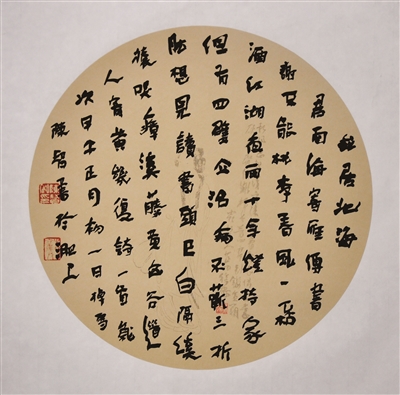 我居北海
君南海寄雁傳書
謝不能桃李春風一杯
酒江湖夜雨十年燈持家
但有四壁立治病不蘄三折
肱想見讀書頭已白隔溪
猿哭瘴溪藤黃山谷道
人寄黃幾復詩一首歲
次甲午正月初一日
陳智書於湘上